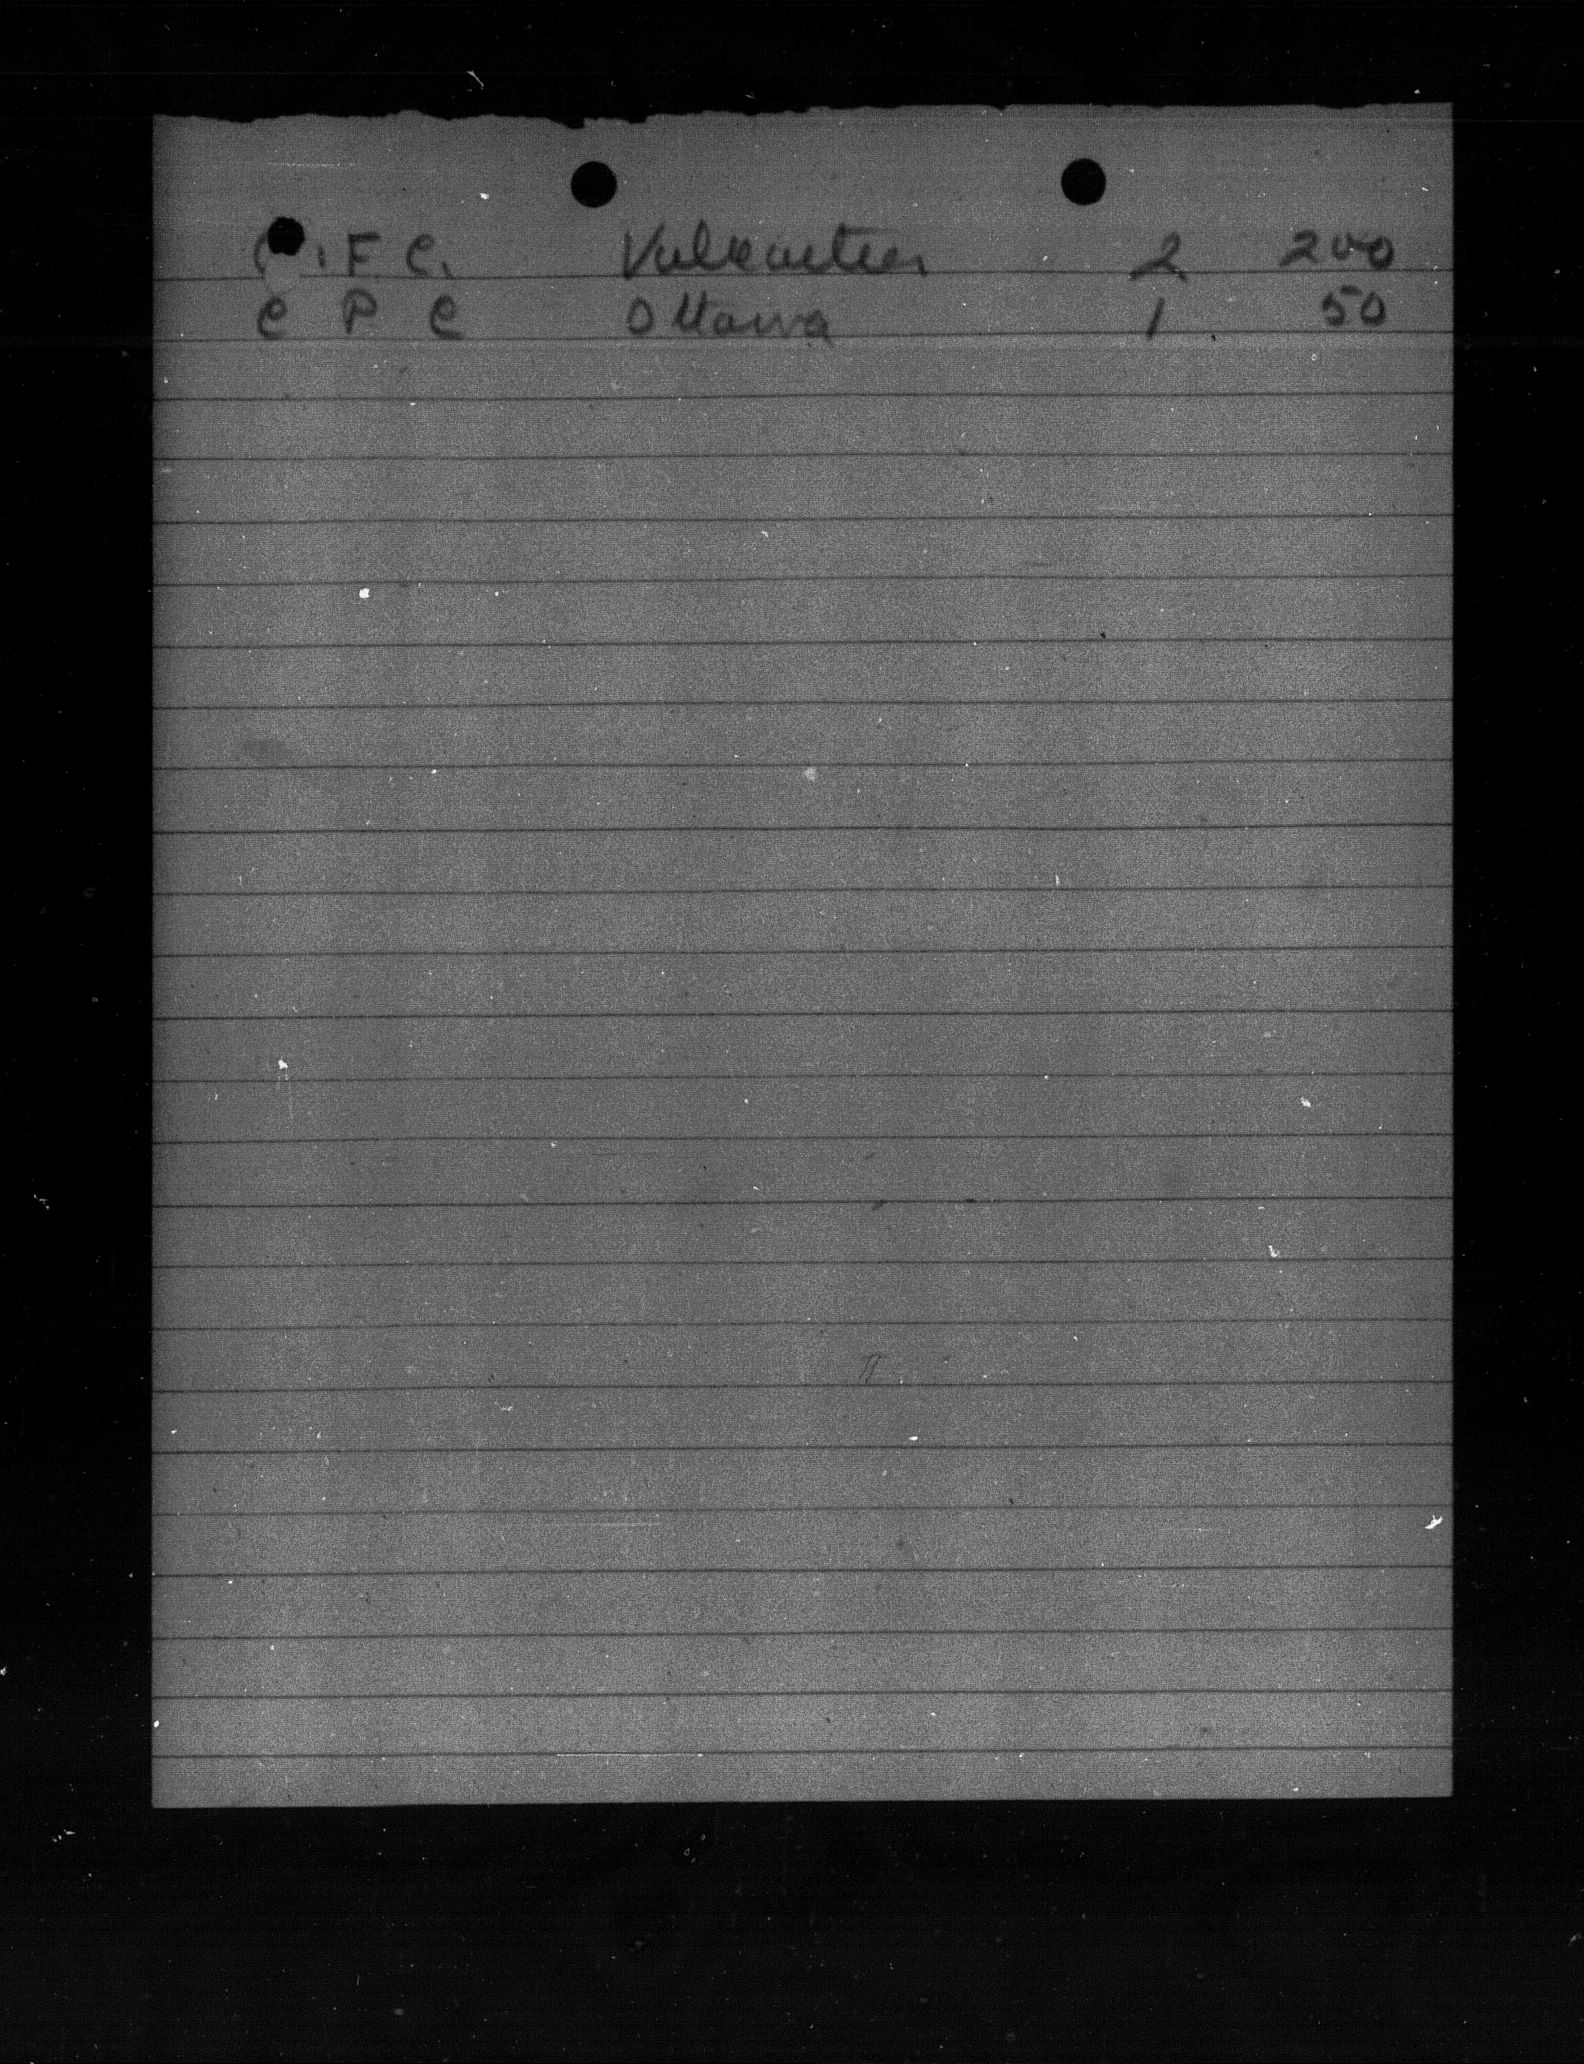 C.F.C. Valcartier 2 200
C P C Ottawa 1 50